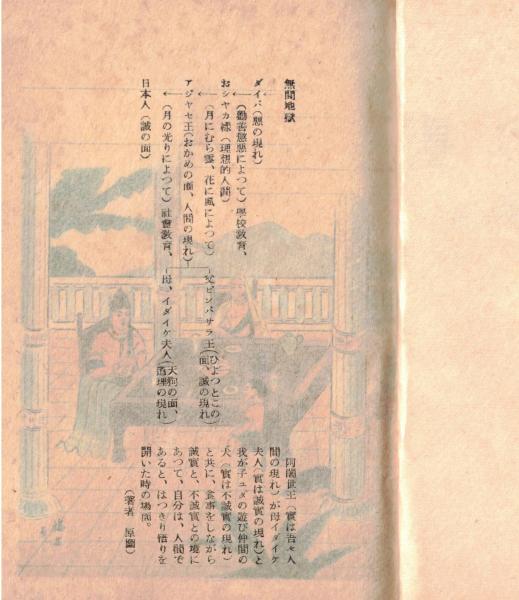 無間地獄
ダイバ(惡の現れ)
(勸善懲惡によつて)學校敎育、
おシャカ樣(理想的人間)
(月にむら雲、花に風によつて)
アジャセ王(おかめの面、人間の現れ)
父ビンバサラ王(ひよつとこの面、誠の現れ)
(月の光りによつて)社會敎育、
母、イダイケ夫人(天狗の面、道理の現れ)
日本人(誠の面)
阿闍世王(實は吾々人
間の現れ)が母イダイケ
夫人(實は誠實の現れ)と
我が子ユダの遊び仲間の
犬(實は不誠實の現れ)
と共に、食事をしながら
誠實と、不誠實との境に
あつて、自分は、人間で
あると、はつきり悟りを
開いた時の場面。
(著者 原圖)